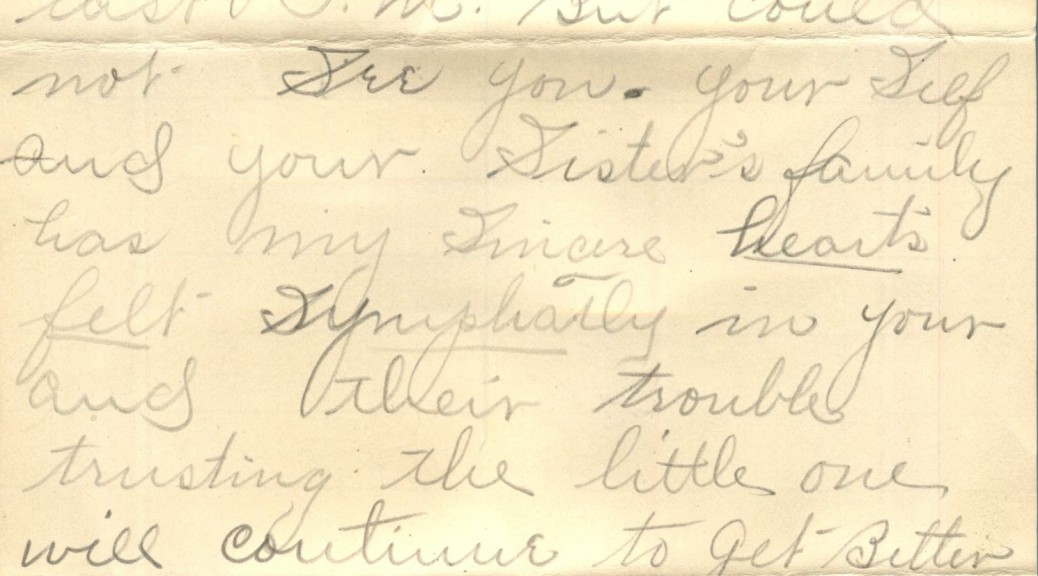 last P. M. But could
not See you. your Self
and your Sister's family
has my Sincere hearts
felt Symphatly in your
and their trouble
trusting the little one
will continue to get Better